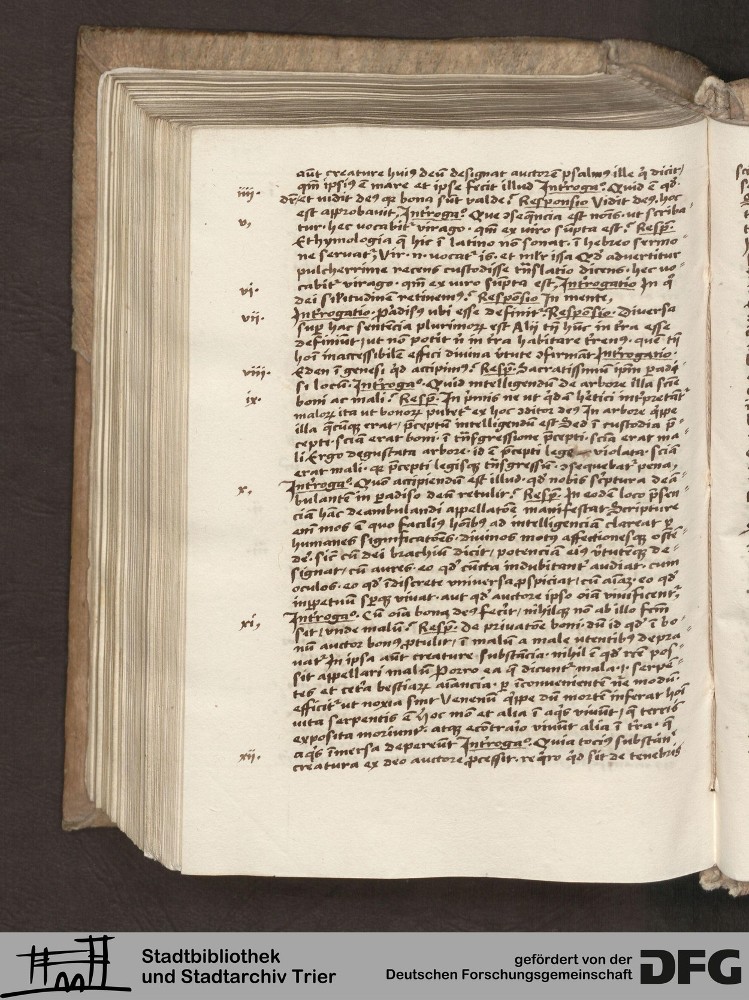 aūt creature huiꝯ deū designat auctorē psalmꝯ ille q̄ dicit/
qm̄ ipsiꝯ ē mare et ipse fecit illud Introgaº. Quid ē qd̛
iiii. et uidit deꝯ qꝫ bona sūt valde? Responsio Vidit deꝯ. hoc
est approbauit, Introgaº Que
v, tur. hec vocabit᷑ virago. qm̄ ex viro sūpta est? Resp̄.
Ethymologia q̄ hic ī latino nō sonat. ī hebreo sermo⸗
ne seruat᷑, Vir. n. vocat᷑ is. et mlr issa Qd advertitur
pulcherrime recens custodisse trāslatio dicens. hec vo⸗
cabit᷑ virago. qm̄ ex viro sūpta est, Introgatio In q̄
vi. dei silitudinē retinemꝯ? Responsio In mente,
vii. Introgatio. padisꝯ ubi esse definit᷑. Responsio. Diuersa
sup̄ hac sentēcia plurimoꝝ est Alij tn̄ hūc in t̄ra esse
definiūt, ut nō in t̄ra habitare t̄renꝯ. quē tn̄
hoī inaccessibilē effici diuina v̄tute ꝯfirmāt Introgatio.
viii. Eden ī genesi qd accipimꝯ? Resp̄. Sacratissimū ip̄m padi⸗
si locū. Introgaº. Quid intelligendū de arbore illa sciē
ix. boni ac mali? Resp̄. In p̄mis ne ut qdā hētici int̄pretāt᷑
maloꝝ ita ut bonoꝝ putet᷑ ex hoc ꝯditor deꝯ In arbore q̄ppe
illa q̄cūqꝫ erat, p̄ceptū intelligendū est Sed ī custodia p̄⸗
cepti. sciā erat boni. ī trāsgressione p̄cepti. scīa erat ma⸗
li. Ergo degustata arbore. id ē p̄cepti lege violata. sciā
erat mali. qꝫ p̄cepti legisqꝫ trāsgressū. ꝯsequebat᷑ pena,
x. Introgaº. Quō accipiendū est illud. qd nobis sc̄ptura deā⸗
bulantē in padiso deū retulit? Resp̄. In eodē loco p̄sen⸗
ciā hāc deambulandi appellatōe manifestat. Scripture
eni mos ē quo faciliꝯ hoībꝯ ad intelligenciā clareat p
humanas significatōes. diuinos motꝯ affectionesqꝫ ostē⸗
de. sic cū dei brachiū dicit, potenciā eiꝯ v̄tutēqꝫ de⸗
signat, cū aures. eo qd̛ cūcta indubitant᷑ audiat. cum
oculos. eo qd̛ īdiscrete vniuersa pspiciat, cū aīaꝫ. eo qd̛
inppetuū spqꝫ viuat. aut qd̛ auctore ipso oīa viuificent᷑,
xi, Introgaº. Cū oīa bona deꝯ fecit, nihilqꝫ nō ab illo fcm̄
sit, vnde malū? Resp̄. De priuatōe boni. dū id qd̛ ī bo⸗
nū auctor bonꝯ ptulit, ī malū a male utentibꝯ depra⸗
uat᷑ In ipsa aūt creature substācia. nihil ē qd̛ rem̄ pos⸗
sit appellari malū, Porro ea q̄ dicunt᷑ mala. i. serpē⸗
tes et cet̄a bestiaꝝ aīancia. p īcōuenientē ne modū.
efficit᷑ ut noxia sint Venenū q̄ippe dū mortē inferat hoī
uita serpentis ē, hoc mō et alia ī aq̄s viuūt, q̄ terris
exposita moriunt᷑. atqꝫ ecōtrario viuūt alia ī t̄ra. q̄
aq̄s īmersa depereūt Introgaº. Quia tociꝯ substān⸗
xii. creatura ex deo auctore pcessit. reqro qd sit de tenebris
Stadtbibliothek
und Stadtarchiv Trier
gefördert von der
Deutschen Forschungsgemeinschaft
DFG